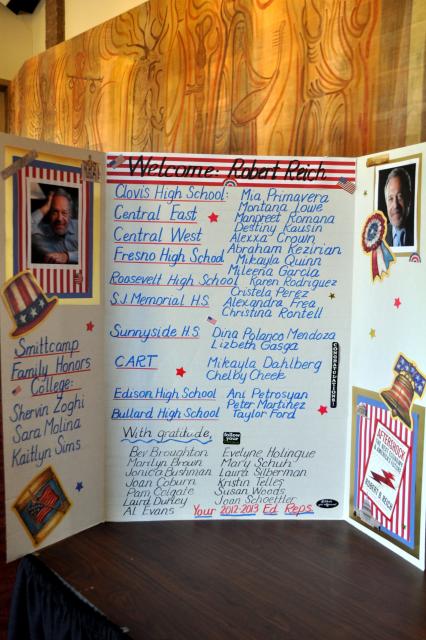 Welcome: Robert Reich
Clovis High School: Mia Primavera
Montana Lowe
Central East Manpreet Romana
Destiny Kausin
Central West Alexxa Crown
Fresno High School Abraham Kezirian
Mikayla Quinn
Mileena Garcia
Roosevelt High School Karen Rodriguez
Cristela Perez
S.J. Memorial H.S. Alexandra Frea
Christina Rontell
Sunnyside H.S. Dina Polanco Mendoza
Lizbeth Gasga
CART Mikayla Dahlberg
Chelby Cheek
Edison High School Ani Petrosyan
Peter Martinez
Bullard High School Taylor Ford
CONGRATULATIONS!
With gratitude,
Bev Broughton Evelyne Holingue
Marilyn Brown Mary Schuh
Jonica Bushman Laura Silberman
Joan Coburn Kristin Telles
Pam Colgate Susan Woods
Laird Durley Joan Schoettler
Al Evans Your 2012-2013 Ed. Reps.
Smittcamp
Family Honors
College:
Shervin Zoghi
Sara Molina
Kaitlyn Sims
AFTERSHOCK
ROBERT B. REICH